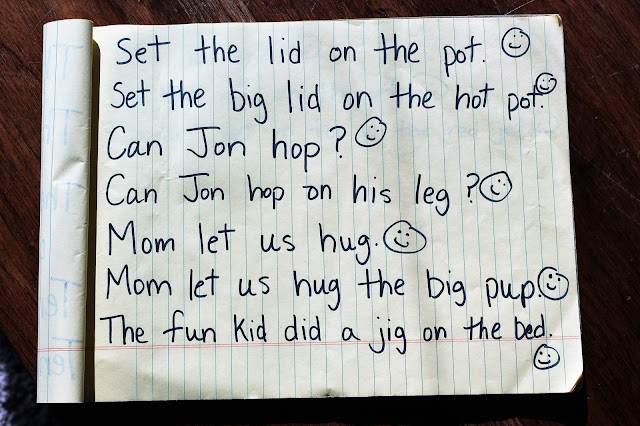 Set the lid on the pot.
Set the big lid on the hot pot.
Can Jon hop?
Can Jon hop on his leg?
Mom let us hug.
Mom let us hug the big pup.
The fun kid did a jig on the bed.